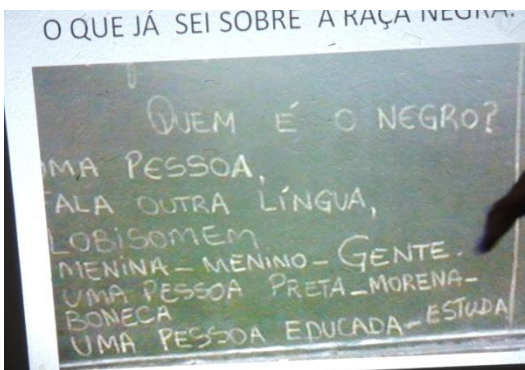 O QUE JÁ SEI SOBRE A RAÇA NEGRA.
QUEM É O NEGRO?
UMA PESSOA,
FALA OUTRA LÍNGUA,
LOBISOMEM.
MENINA - MENINO - GENTE.
UMA PESSOA PRETA - MORENA -
BONECA
UMA PESSOA EDUCADA - ESTUDA